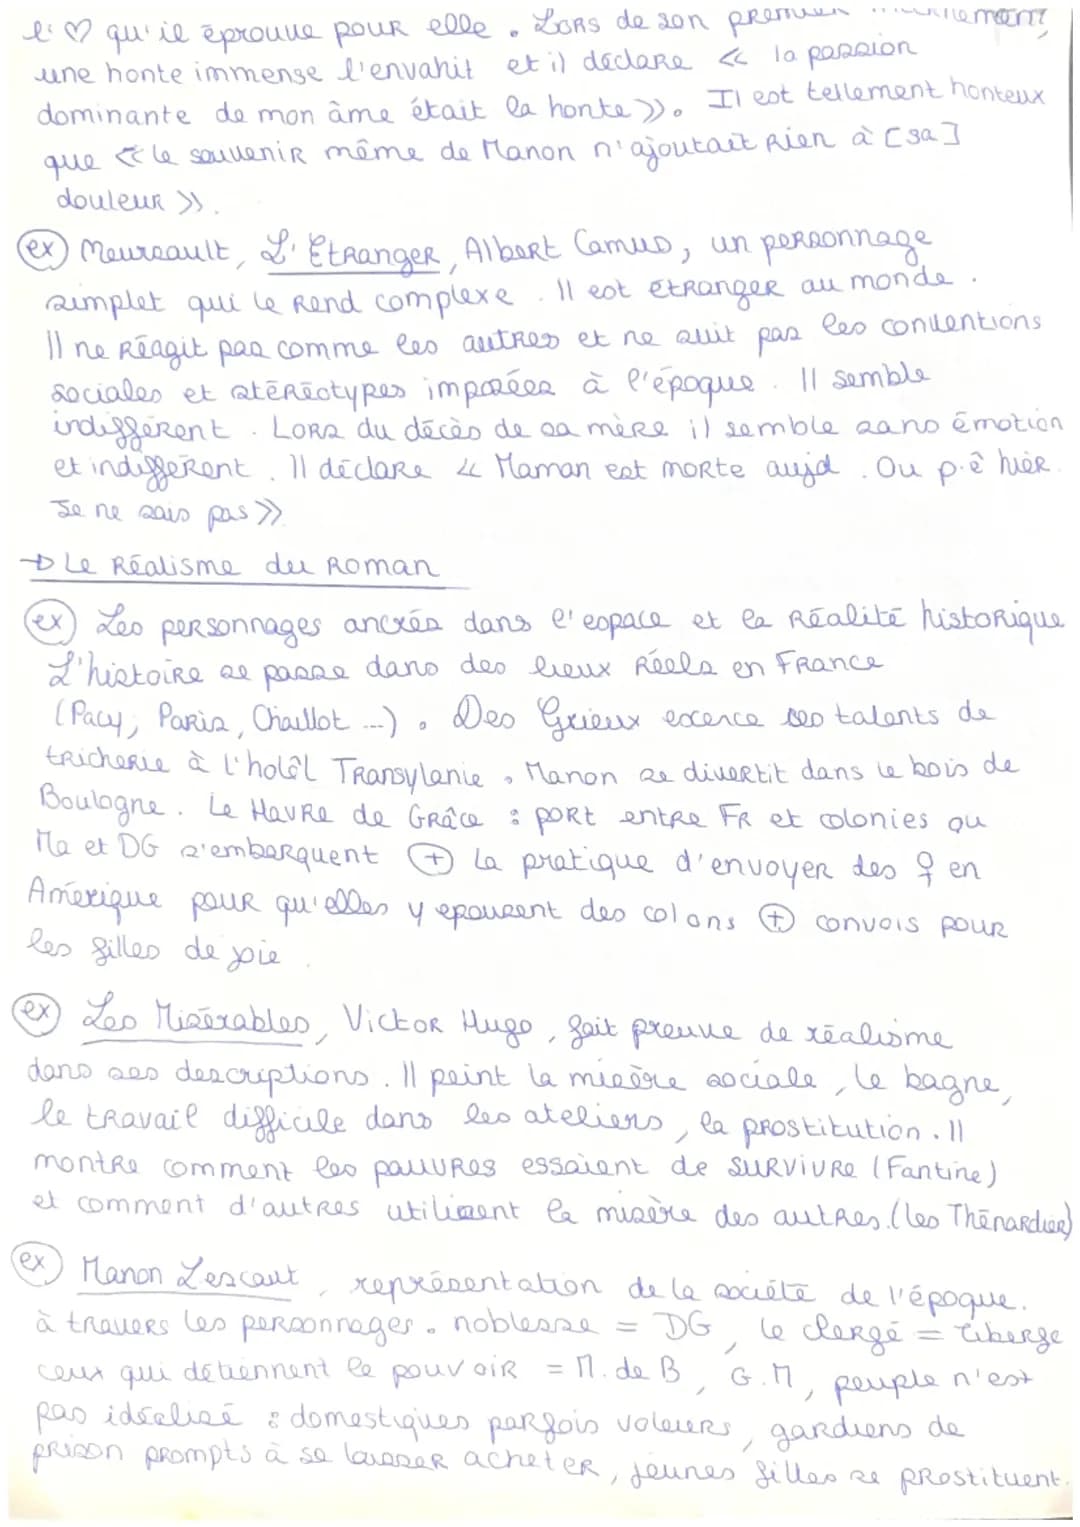 l'♡ qu'il éprouve pour elle. Lors de son premier
une honte immense l'envahit et il déclare « la passion
dominante de mon âme était la honte ». Il est tellement honteux
que « le souvenir même de Manon n'ajoutait rien à [sa]
douleur ».
(ex) Meursault, L'Etranger, Albert Camus, un personnage
simplet qui le rend complexe. Il est étranger au monde.
Il ne réagit pas comme les autres et ne suit pas les conventions
sociales et stéréotypes imposées à l'époque. Il semble
indifférent. Lors du décès de sa mère il semble sans émotion
et indifférent. Il déclare « Maman est morte aujd. Ou p.ê hier.
Je ne sais pas »
→ Le Réalisme du Roman
(ex) Les personnages ancrés dans l'espace et la réalité historique
L'histoire se passe dans des lieux réels en France
(Pacy, Paris, Chaillot ...). Des Grieux excerce ses talents de
tricherie à l'hôtel Transylanie. Manon se divertit dans le bois de
Boulogne. Le Havre de Grâce : port entre FR et colonies où
Ma et DG s'embarquent (+) La pratique d'envoyer des ♀ en
Amérique pour qu'elles y épousent des colons (+) convois pour
les filles de joie.
(ex) Les Misérables, Victor Hugo, fait preuve de réalisme
dans ses descriptions. Il peint la misère sociale, le bagne,
le travail difficile dans les ateliers, la prostitution. Il
montre comment les pauvres essaient de survivre (Fantine)
et comment d'autres utilisent la misère des autres. (les Thénardier)
(ex) Manon Lescaut, représentation de la société de l'époque.
à travers les personnages. noblesse = DG, le clergé = Tiberge
ceux qui détiennent le pouvoir = M. de B, G.M, peuple n'est
pas idéalisé : domestiques parfois voleurs, gardiens de
prison prompts à se laisser acheter, jeunes filles se prostituent.